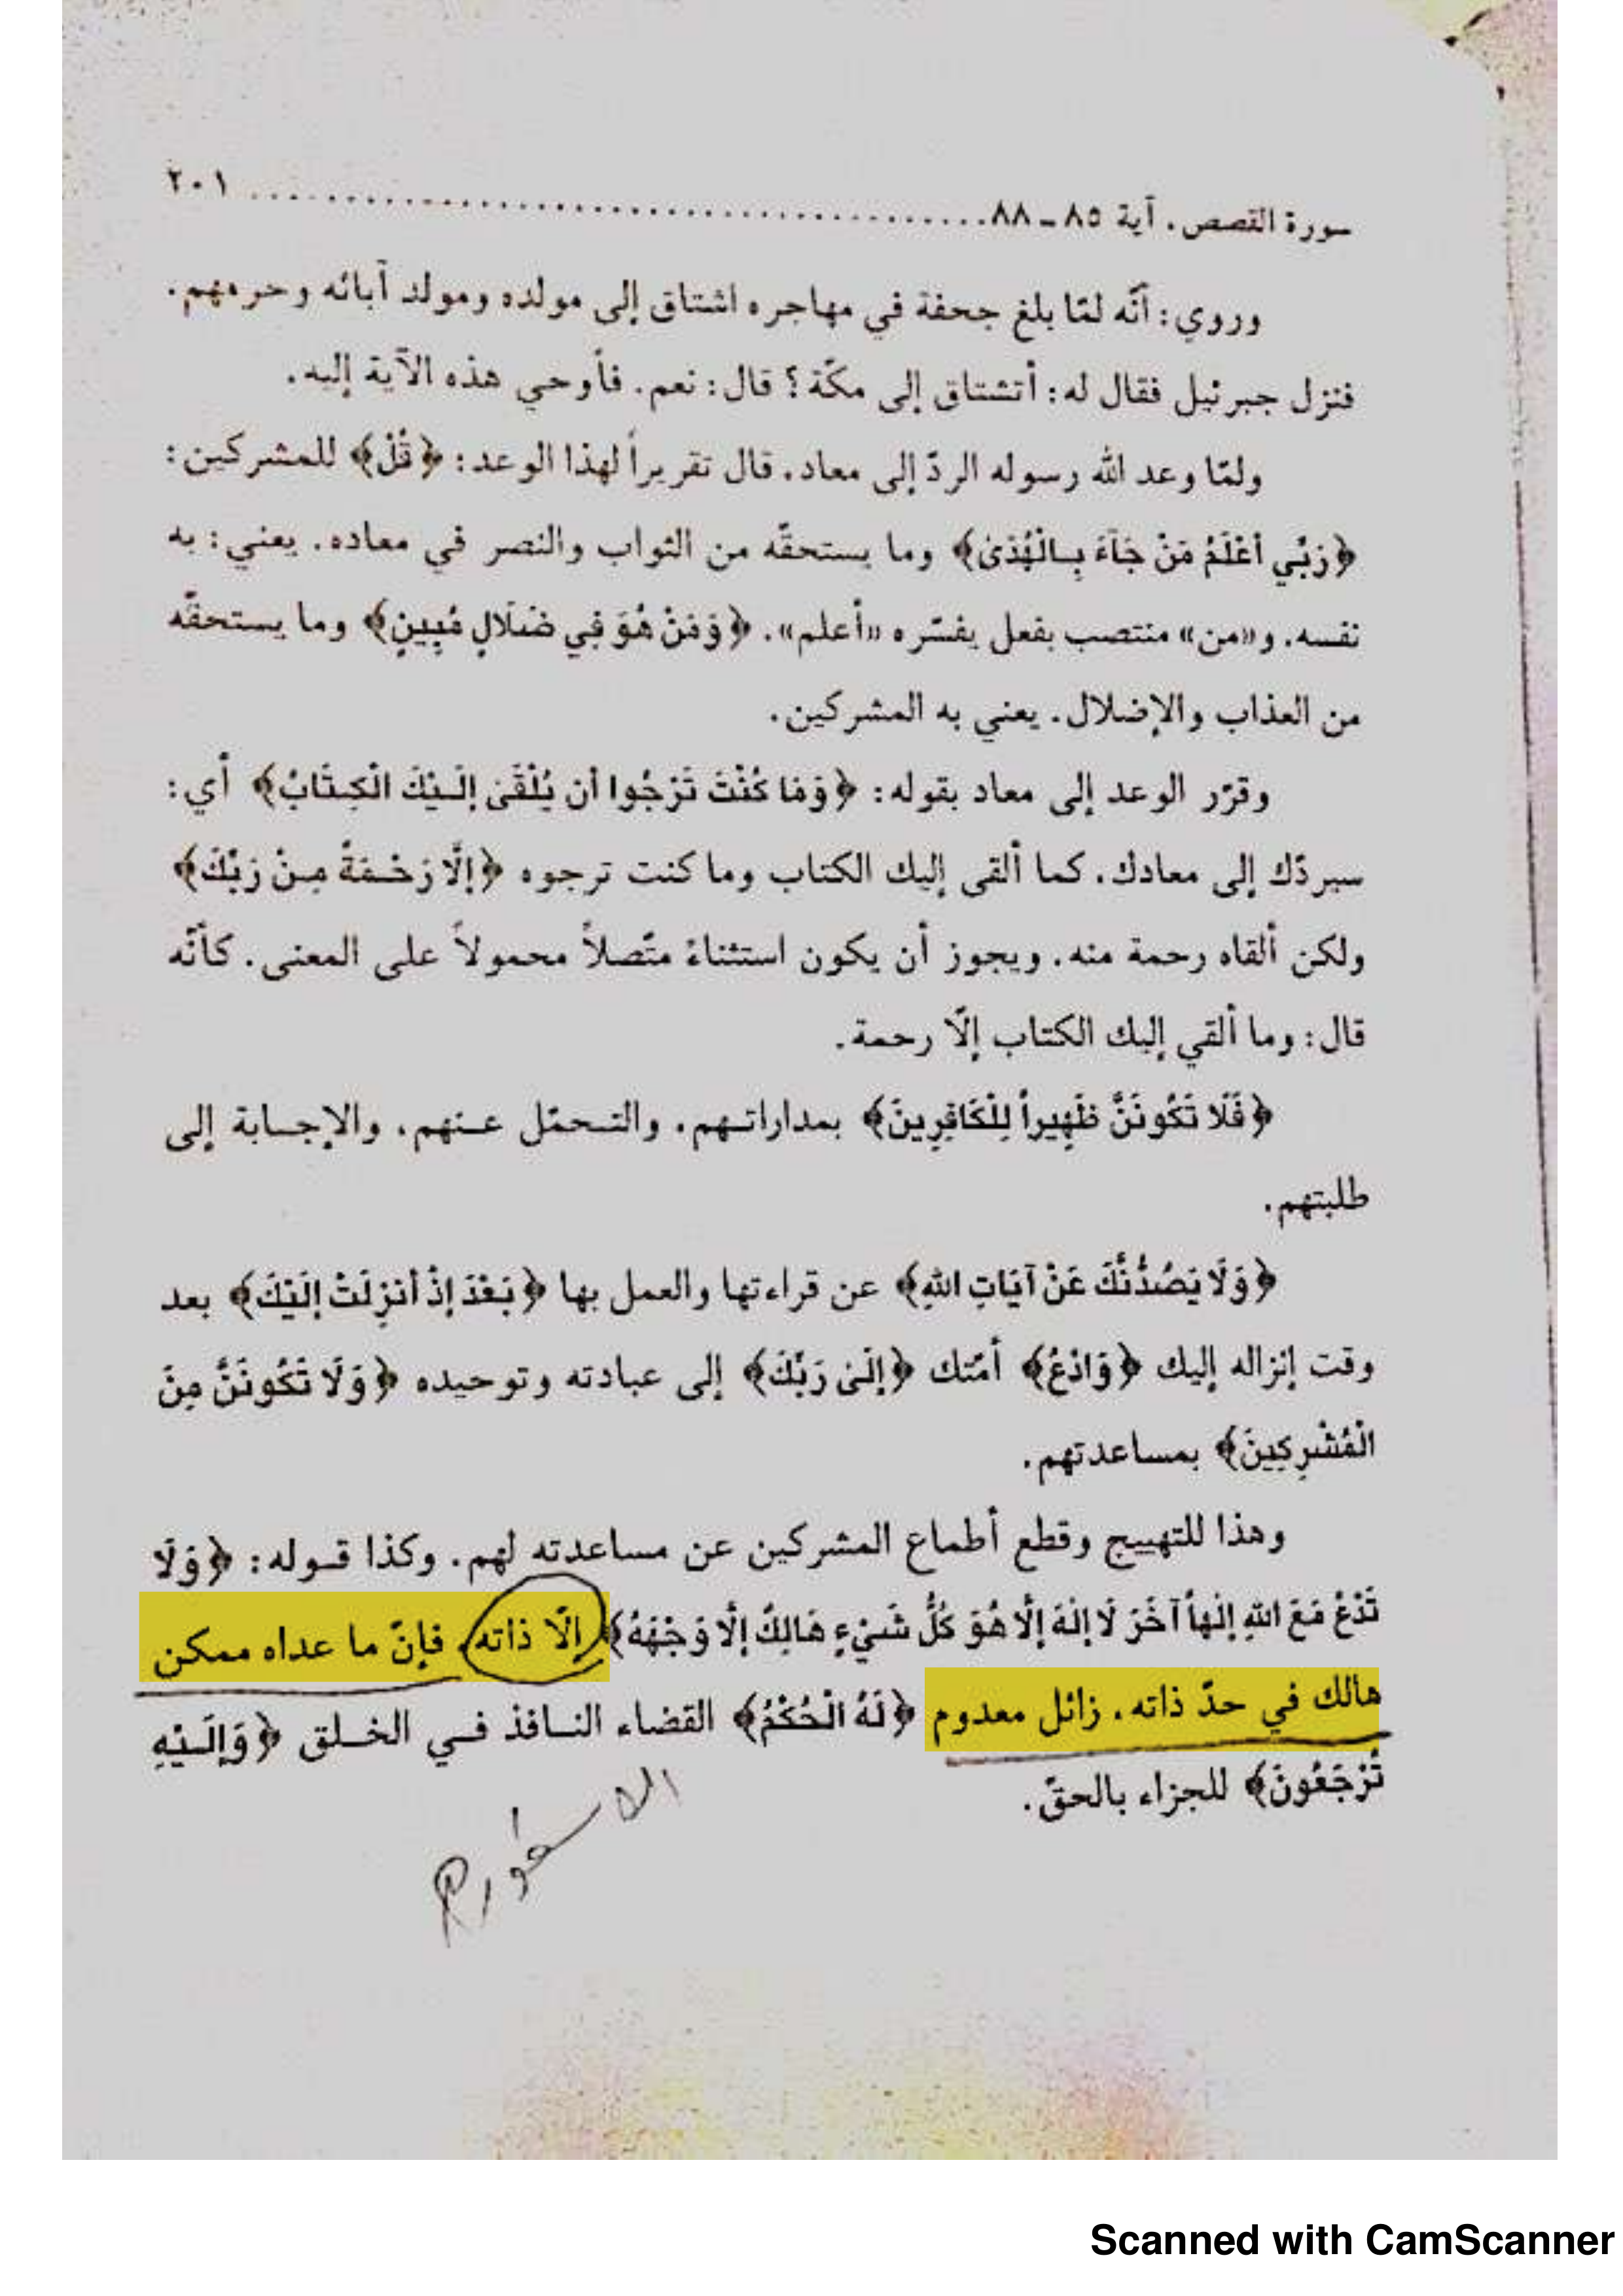 سورة القصص، آية ٨٥ ـ ٨٨ ............................................. ٢٠١
وروي: أنّه لمّا بلغ جحفة في مهاجره اشتاق إلى مولده ومولد آبائه وحرمهم.
فنزل جبرئيل فقال له: أتشتاق إلى مكّة؟ قال: نعم. فأوحي هذه الآية إليه.
ولمّا وعد الله رسوله الردّ إلى معاد، قال تقريراً لهذا الوعد: ﴿قُلْ﴾ للمشركين:
﴿رَبِّي أَعْلَمُ مَنْ جَآءَ بِالْهُدَىٰ﴾ وما يستحقّه من الثواب والنصر في معاده. يعني: به
نفسه. و«من» منتصب بفعل يفسّره «أعلم». ﴿وَمَنْ هُوَ فِي ضَلَالٍ مُبِينٍ﴾ وما يستحقّه
من العذاب والإضلال. يعني به المشركين.
وقرّر الوعد إلى معاد بقوله: ﴿وَمَا كُنْتَ تَرْجُوا أَن يُلْقَىٰ إِلَيْكَ الْكِتَابُ﴾ أي:
سيردّك إلى معادك، كما ألقى إليك الكتاب وما كنت ترجوه ﴿إِلَّا رَحْمَةً مِنْ رَبِّكَ﴾
ولكن ألقاه رحمة منه. ويجوز أن يكون استثناءً متّصلاً محمولاً على المعنى. كأنّه
قال: وما ألقي إليك الكتاب إلّا رحمة.
﴿فَلَا تَكُونَنَّ ظَهِيراً لِلْكَافِرِينَ﴾ بمداراتهم، والتحمّل عنهم، والإجابة إلى
طلبتهم.
﴿وَلَا يَصُدُّنَّكَ عَنْ آيَاتِ اللهِ﴾ عن قراءتها والعمل بها ﴿بَعْدَ إِذْ أُنزِلَتْ إِلَيْكَ﴾ بعد
وقت إنزاله إليك ﴿وَادْعُ﴾ أمّتك ﴿إِلَىٰ رَبِّكَ﴾ إلى عبادته وتوحيده ﴿وَلَا تَكُونَنَّ مِنَ
الْمُشْرِكِينَ﴾ بمساعدتهم.
وهذا للتهييج وقطع أطماع المشركين عن مساعدته لهم. وكذا قوله: ﴿وَلَا
تَدْعُ مَعَ اللهِ إِلٰهاً آخَرَ لَا إِلٰهَ إِلَّا هُوَ كُلُّ شَيْءٍ هَالِكٌ إِلَّا وَجْهَهُ﴾ إلّا ذاته، فإنّ ما عداه ممكن
هالك في حدّ ذاته، زائل معدوم ﴿لَهُ الْحُكْمُ﴾ القضاء النافذ في الخلق ﴿وَإِلَيْهِ
تُرْجَعُونَ﴾ للجزاء بالحقّ.
Scanned with CamScanner